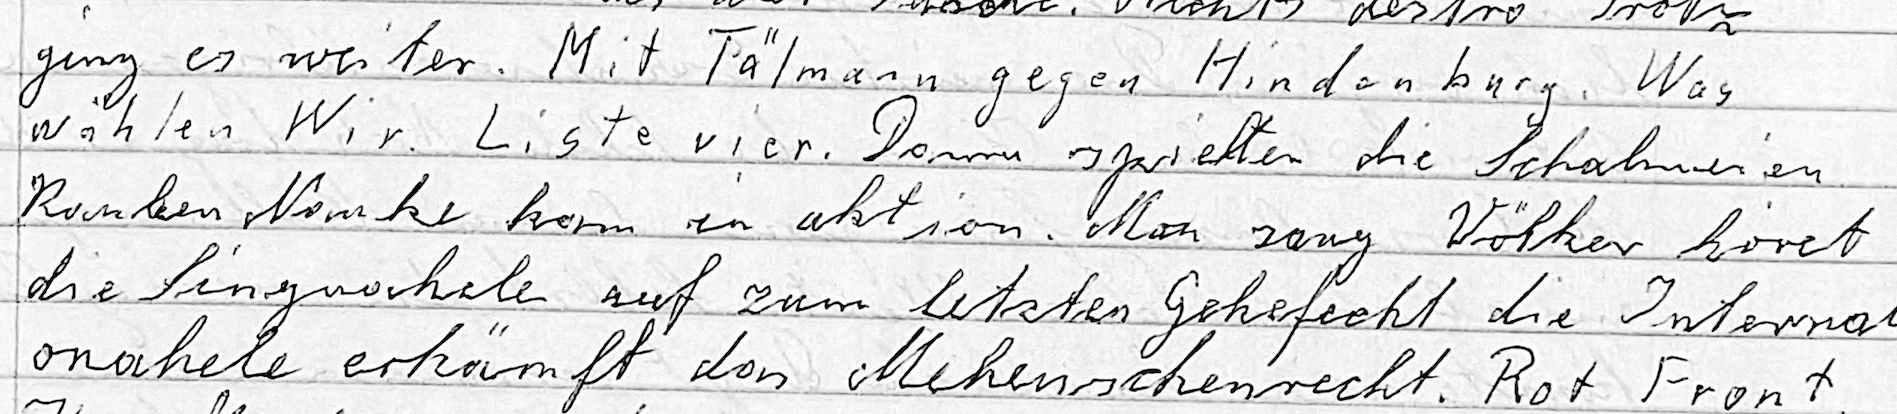 Nichts destro trotz
ging es weiter. Mit Tälmann gegen Hindenburg. Was
wählen Wir. Liste vier. Dann spielten die Schalmeien
kam in aktion. Man sang Völker höret
die Singnahele auf zum letzten Gehefecht die Internat
onahele erkämft das Mehenschenrecht. Rot Front.